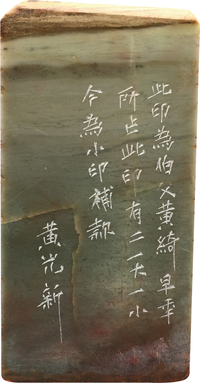 此印為伯父黃綺早年
所占此印有二一大一小
今為小印補款
黃光新